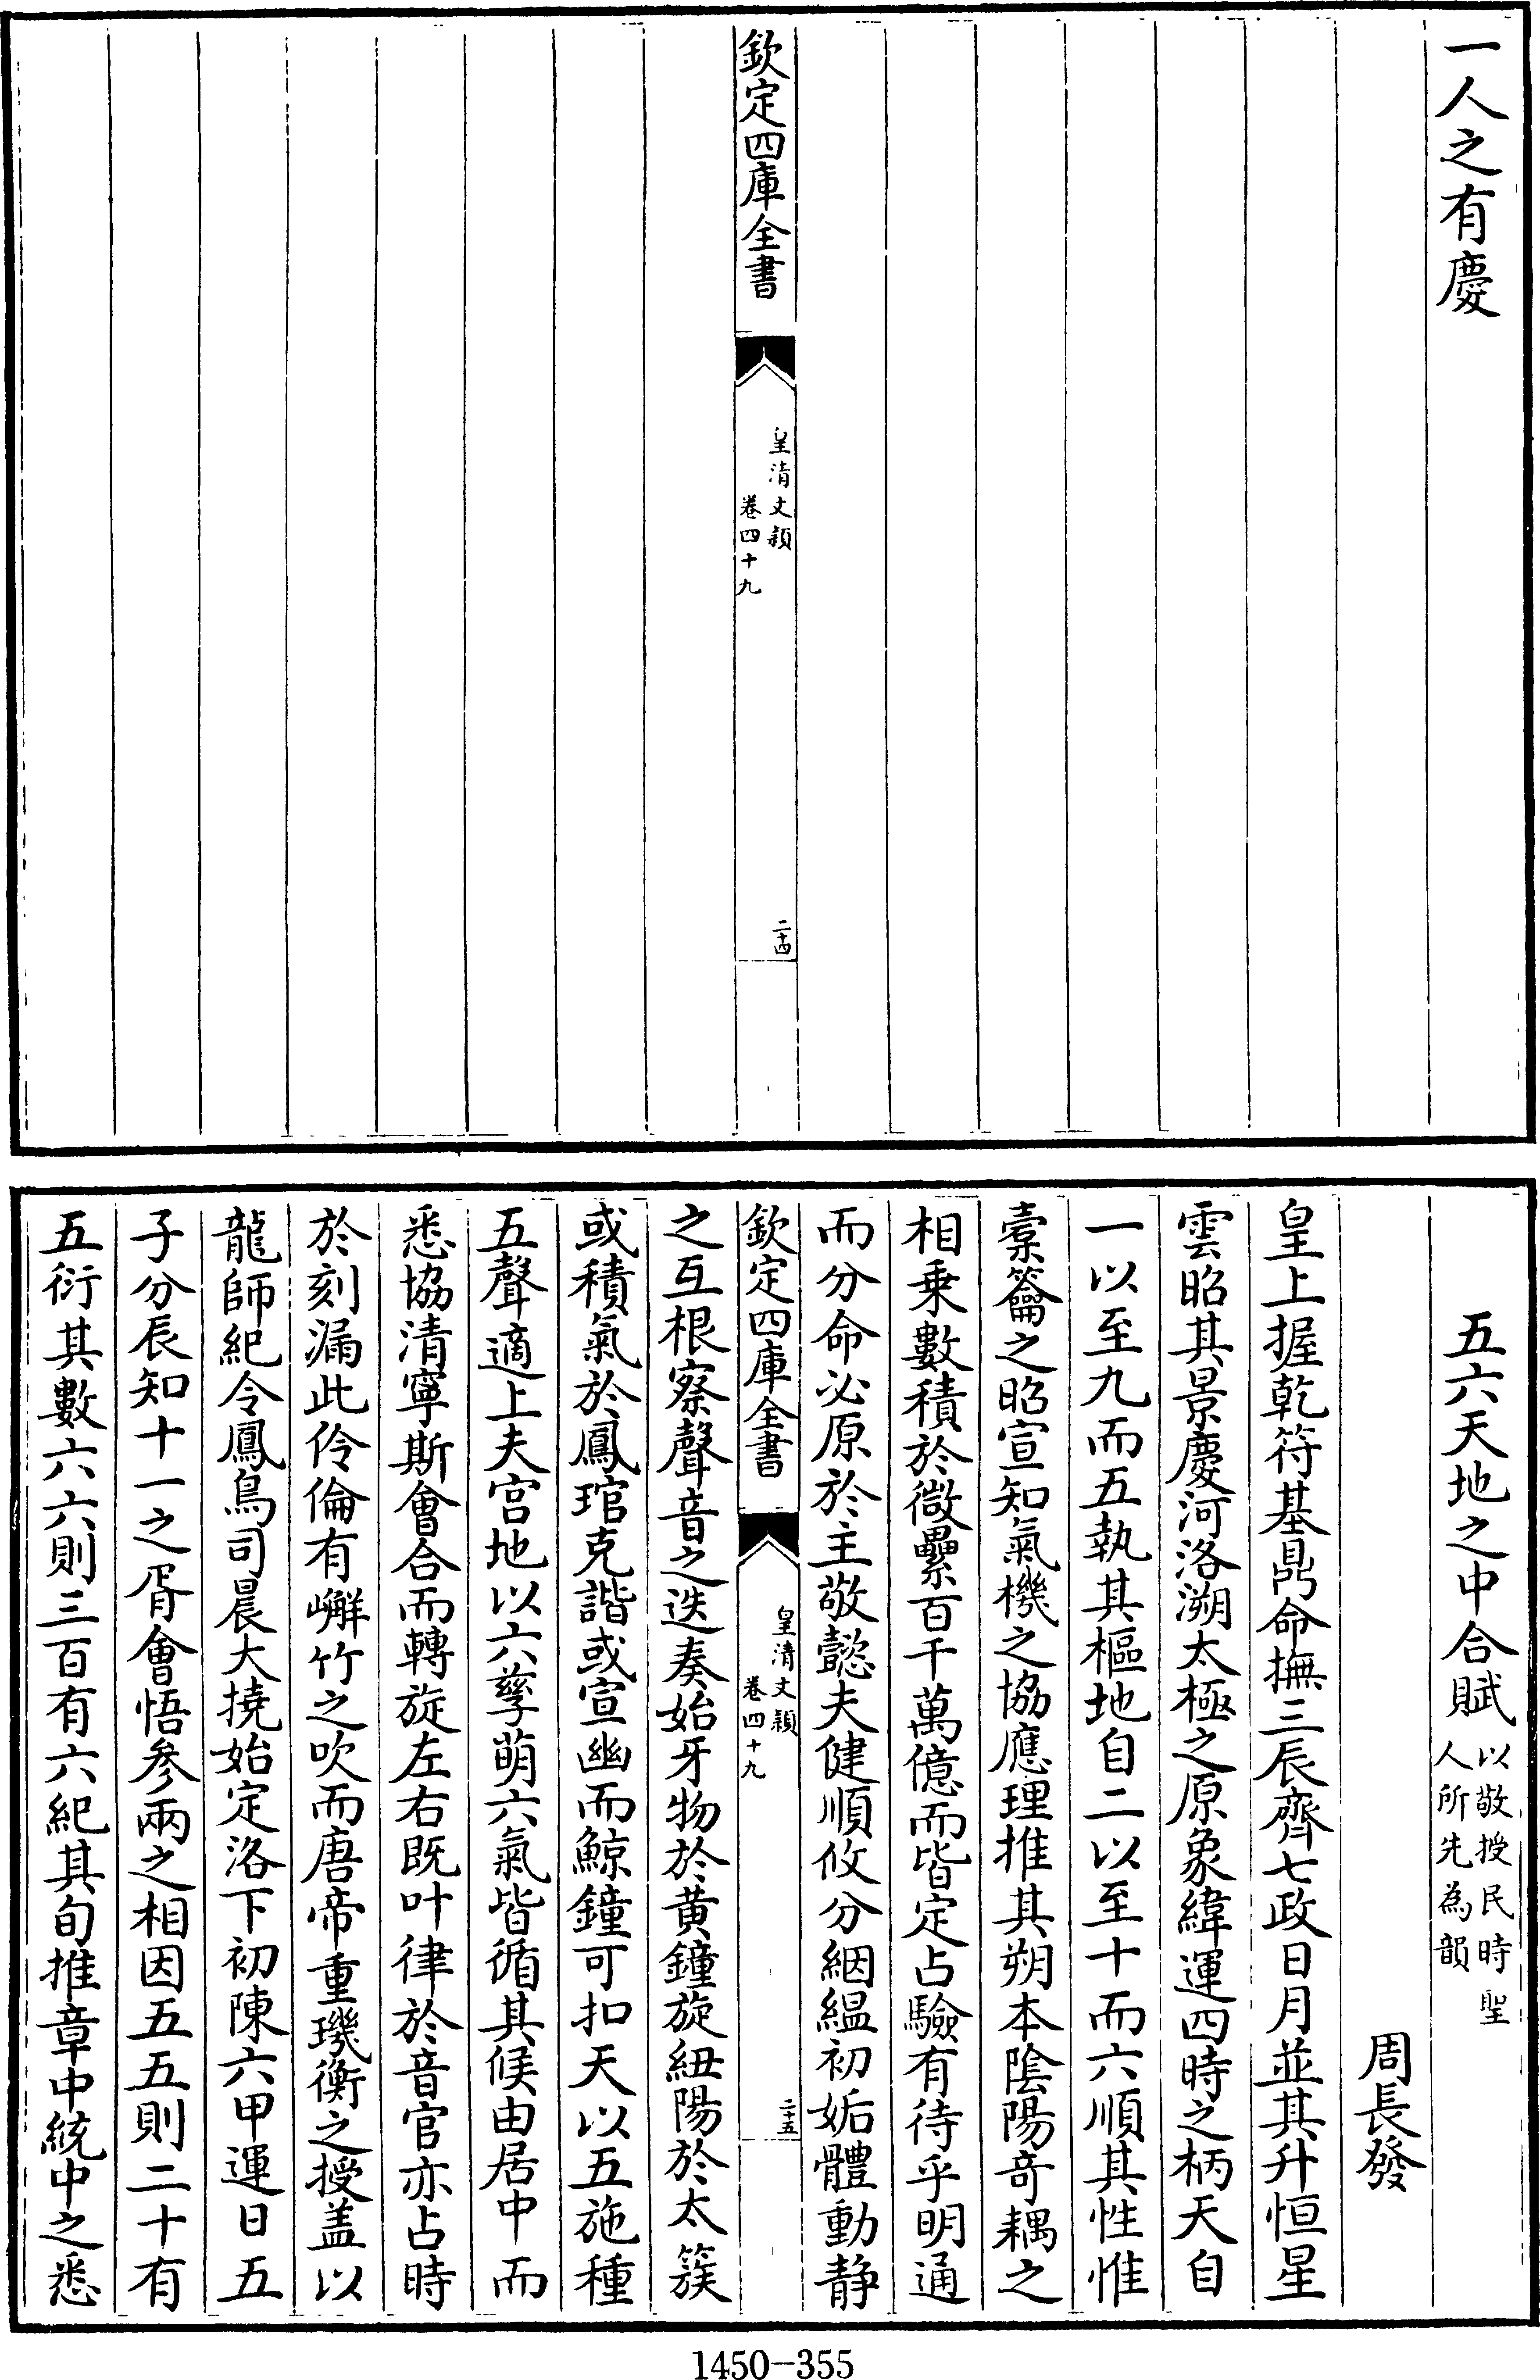 一人之有慶
欽定四庫全書
皇清文穎
卷四十九
二十四
五六天地之中合賦以敬授民時聖
人所先為韻
周長發
皇上握乾符基鼎命撫三辰齊七政日月並其升恒星
雲昭其景慶河洛溯太極之原象緯運四時之柄天自
一以至九而五執其樞地自二以至十而六順其性惟
橐籥之昭宣知氣機之協應理推其朔本陰陽奇耦之
相乗數積於微纍百千萬億而皆定占驗有待乎明通
而分命必原於主敬懿夫健順攸分絪緼初姤體動静
欽定四庫全書
皇清文穎
卷四十九
二十五
之互根察聲音之迭奏始牙物於黄鐘旋紐陽於太簇
或積氣於鳳琯克諧或宣幽而鯨鐘可扣天以五施種
五聲適上夫宫地以六孳萌六氣皆循其候由居中而
悉協清寧斯會合而轉旋左右既叶律於音官亦占時
於刻漏此伶倫有嶰竹之吹而唐帝重璣衡之授盖以
龍師紀令鳳鳥司晨大撓始定洛下初陳六甲運日五
子分辰知十一之胥會悟參兩之相因五五則二十有
五衍其數六六則三百有六紀其旬推章中統中之悉
1450-355